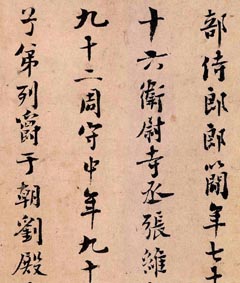 部侍郎郎簡年七十
十六衛尉寺丞張維
九十二周守中年九十
子弟列爵于朝劉殿